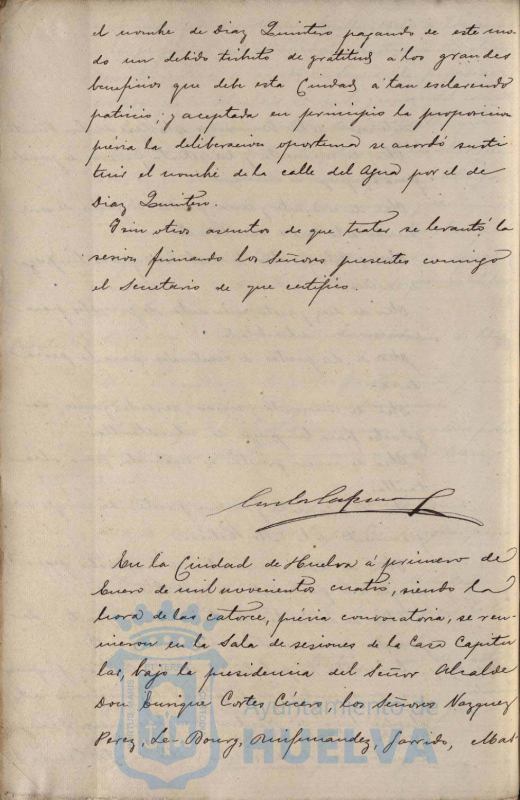 el nombre de Diaz Quintero pagando de este mo-
do un debido tributo de gratitud á los grandes
beneficios que debe esta Ciudad á tan esclarecido
patricio; y aceptada en principio la proposicion
prévia la deliberacion oportuna se acordó susti-
tuir el nombre de la calle del Agua por el de
Diaz Quintero.
Y sin otros asuntos de que tratar se levantó la
sesion firmando los Señores presentes conmigo
el Secretario de que certifico.
En la Ciudad de Huelva á primero de
Enero de mil novecientos cuatro, siendo la
hora de las catorce, prévia convocatoria, se reu-
nieron en la Sala de sesiones de la Casa Capitu-
lar, bajo la presidencia del Señor Alcalde
Don Enrique Cortes Cícero, los Señores Vazquez
Perez, Le-Bourg, Garrido, Mat-
Ayuntamiento de
HUELVA